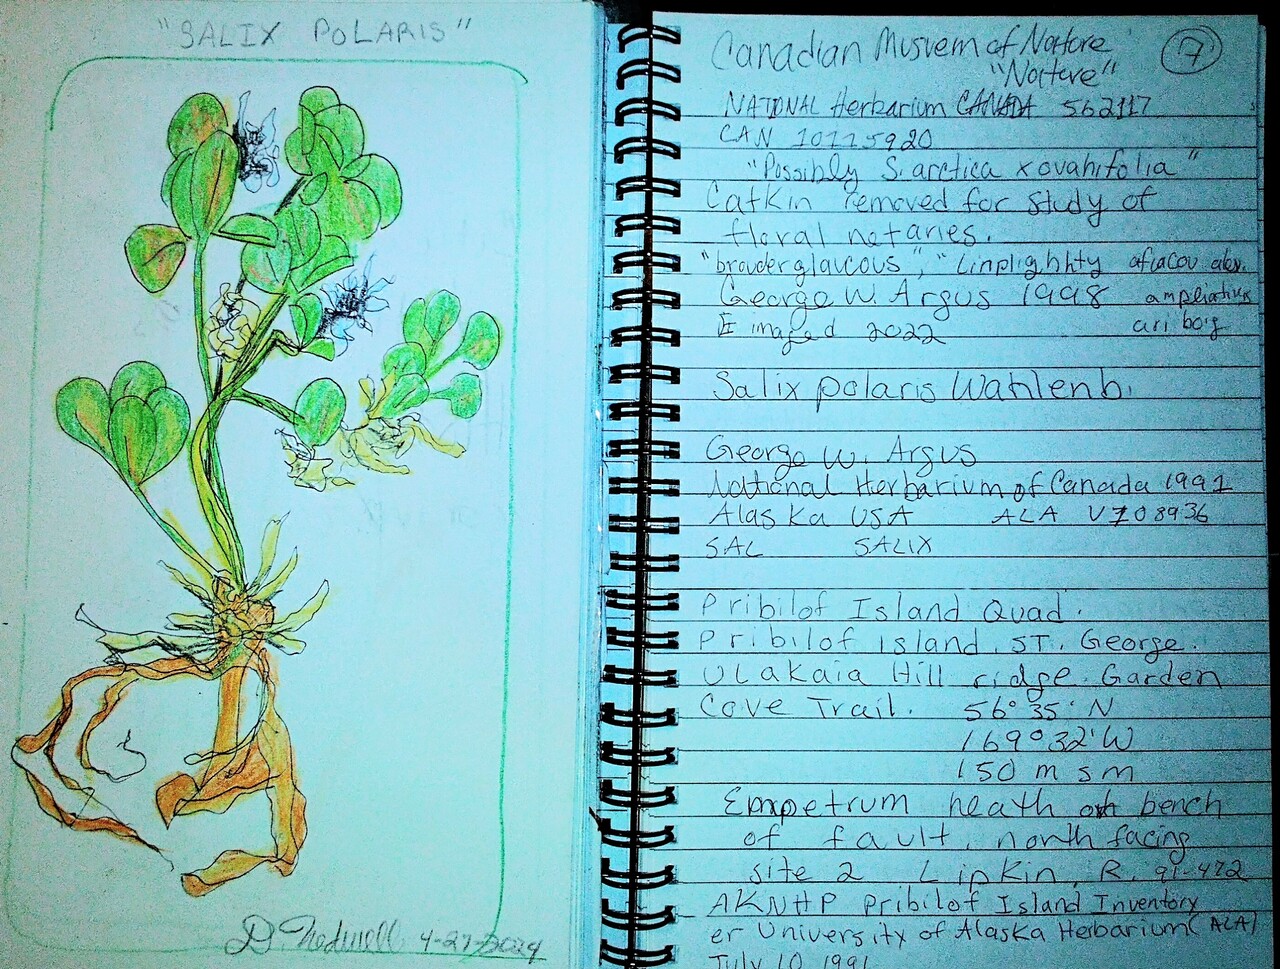 "SALIX POLARIS"
D. Nedwell 4-27-2024
Canadian Museum of Nature
"Nature"
7
NATIONAL Herbarium CANADA 562117
CAN 10115920
"Possibly S. arctica x ovalifolia"
Catkin removed for study of
floral netaries.
"brouder glaucous", "
George W. Argus 1998
Imaged 2022
Salix polaris Wahlenb.
George W. Argus
National Herbarium of Canada 1991
Alaska USA ALA V108936
SAL SALIX
Pribilof Island Quad.
Pribilof Island, ST. George.
Ulakaia Hill ridge. Garden
Cove Trail. 56° 35' N
169° 32' W
150 m s m
Empetrum heath on bench
of fault, north facing
site 2 Lipkin, R. 91-472
AKNHP Pribilof Island Inventory
er University of Alaska Herbarium (ALA)
July 10, 1991